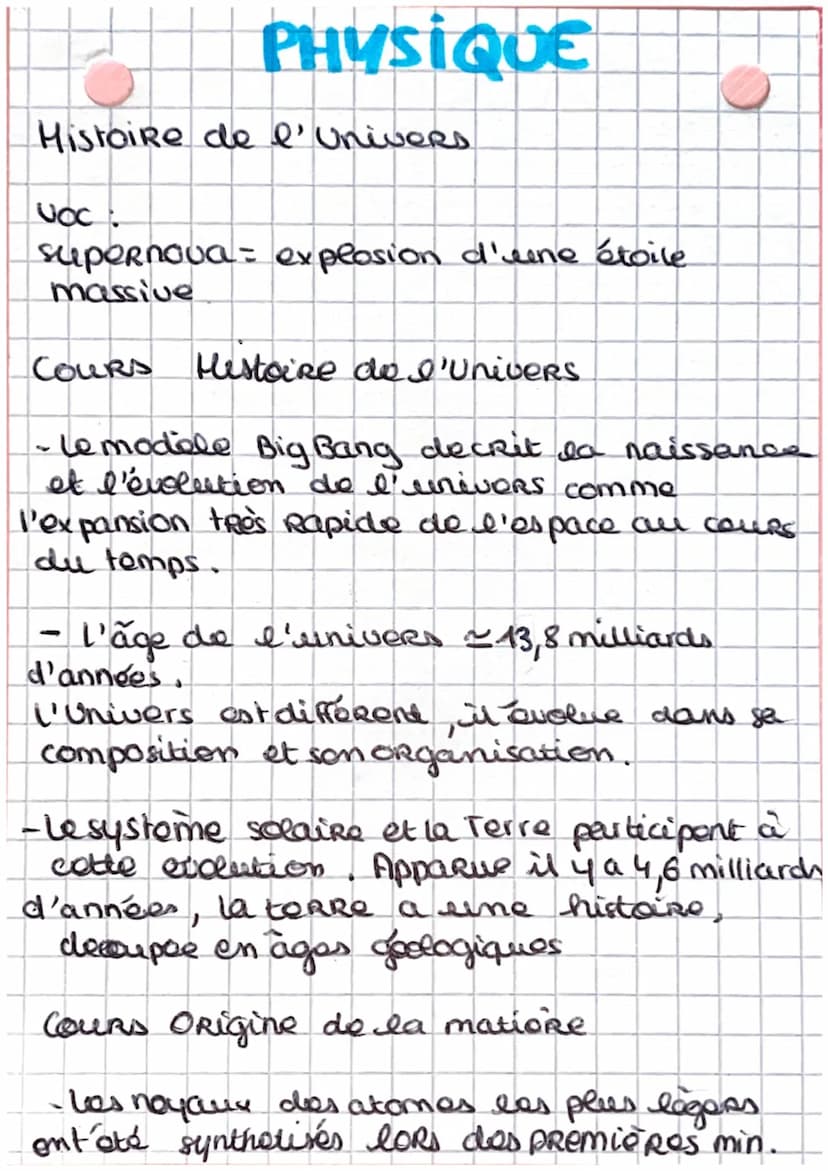 PHYSiQUE
Histoire de l'Univers
Voc :
supernova = explosion d'une étoile
massive
Cours Histoire de l'Univers
- Le modèle Big Bang decrit la naissance
et l'évolution de l'univers comme
l'expansion très rapide de l'espace au cours
du temps.
- L'âge de l'univers ≃ 13,8 milliards
d'années.
L'Univers est différent, il évolue dans sa
composition et son organisation.
- Le système solaire et la Terre participent à
cette evolution. Apparue il y a 4,6 milliards
d'années, la terre a une histoire,
decoupée en âges géologiques
Cours Origine de la matière
- Les noyaux des atomes les plus légers
ont été synthétisés lors des premières min.